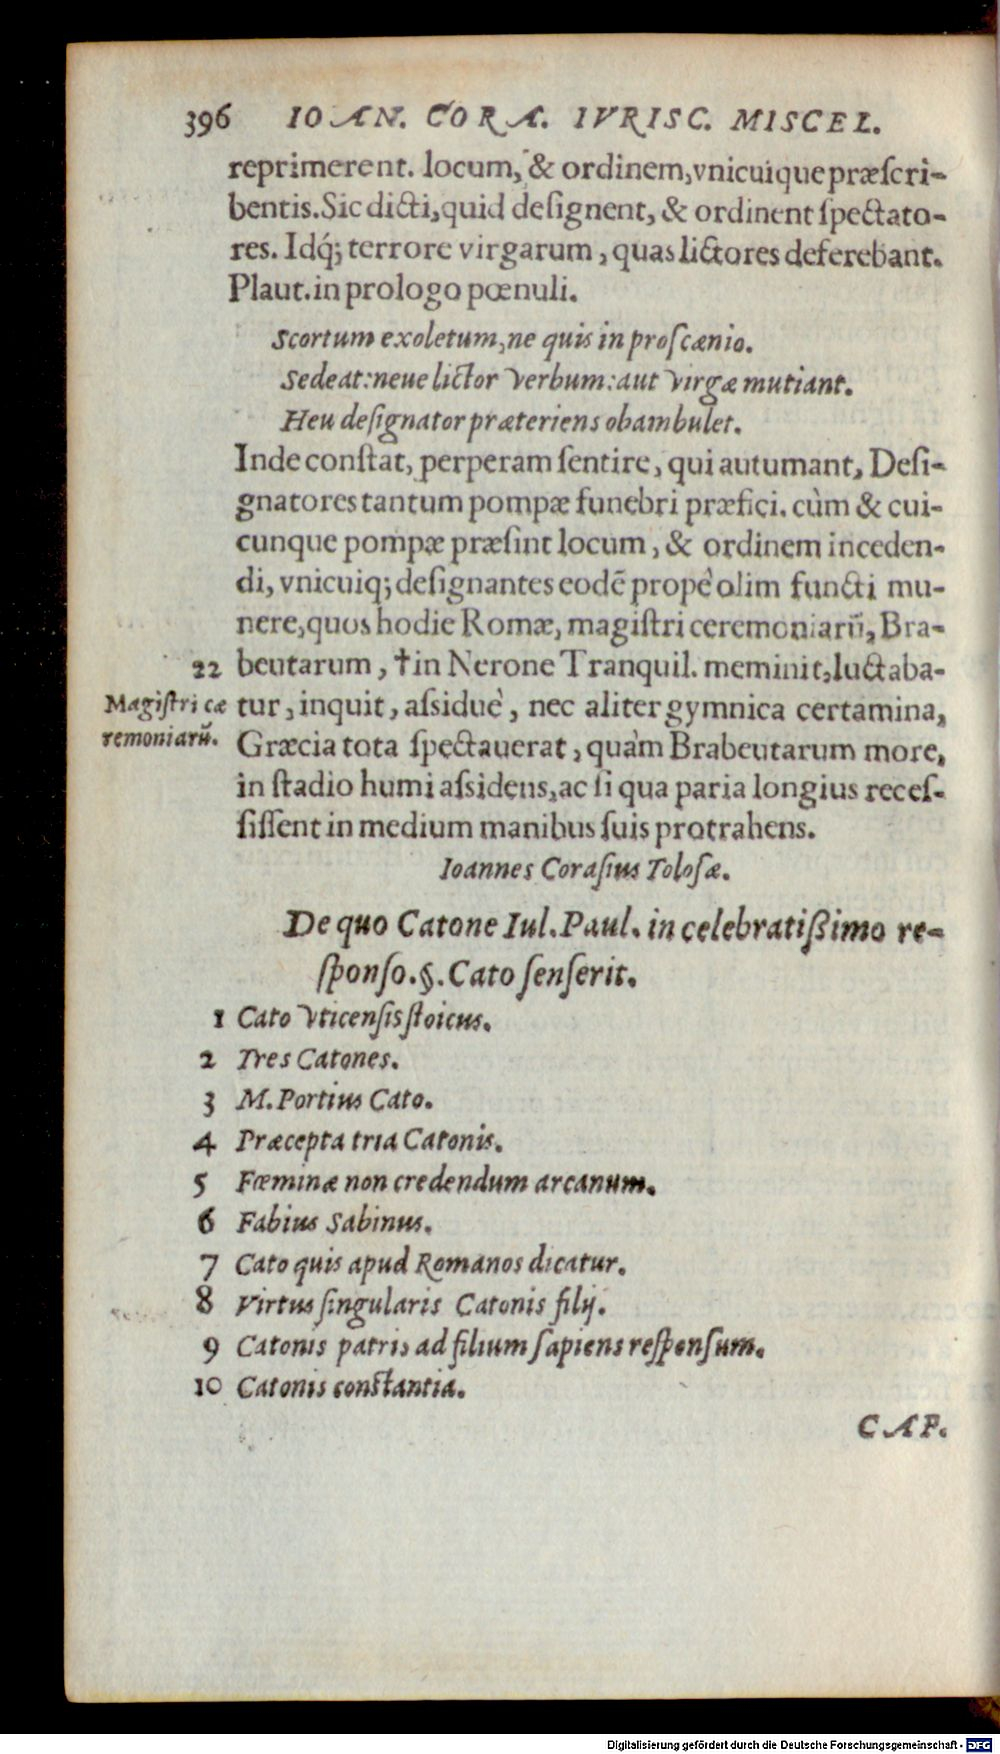 396 IOAN. CORA. IVRISC. MISCEL.
reprimerent. locum, & ordinem, vnicuique præſcri-
bentis. Sic dicti, quid deſignent, & ordinent ſpectato-
res. Idq́; terrore virgarum, quas lictores deferebant.
Plaut. in prologo pœnuli.
Scortum exoletum, ne quis in proſcænio.
Sedeat: neue lictor verbum: aut virgæ mutiant.
Heu deſignator præteriens obambulet.
Inde conſtat, perperam ſentire, qui autumant, Deſi-
gnatores tantum pompæ funebri præfici. cùm & cui-
cunque pompæ præſint locum, & ordinem inceden-
di, vnicuiq; deſignantes eodẽ propè olim functi mu-
nere, quos hodie Romæ, magiſtri ceremoniarũ, Bra-
22 beutarum, † in Nerone Tranquil. meminit, luctaba-
Magiſtri cæ
remoniarũ.
tur, inquit, aſsiduè, nec aliter gymnica certamina,
Græcia tota ſpectauerat, quàm Brabeutarum more,
in ſtadio humi aſsidens, ac ſi qua paria longius receſ-
ſiſſent in medium manibus ſuis protrahens.
Ioannes Coraſius Toloſæ.
De quo Catone Iul. Paul. in celebratißimo re-
ſponſo. §. Cato ſenſerit.
1 Cato Vticenſis ſtoicus.
2 Tres Catones.
3 M. Portius Cato.
4 Præcepta tria Catonis.
5 Fœminæ non credendum arcanum.
6 Fabius Sabinus.
7 Cato quis apud Romanos dicatur.
8 Virtus ſingularis Catonis filij.
9 Catonis patris ad filium ſapiens reſponſum.
10 Catonis conſtantia.
CAP.
Digitalisierung gefördert durch die Deutsche Forschungsgemeinschaft - DFG